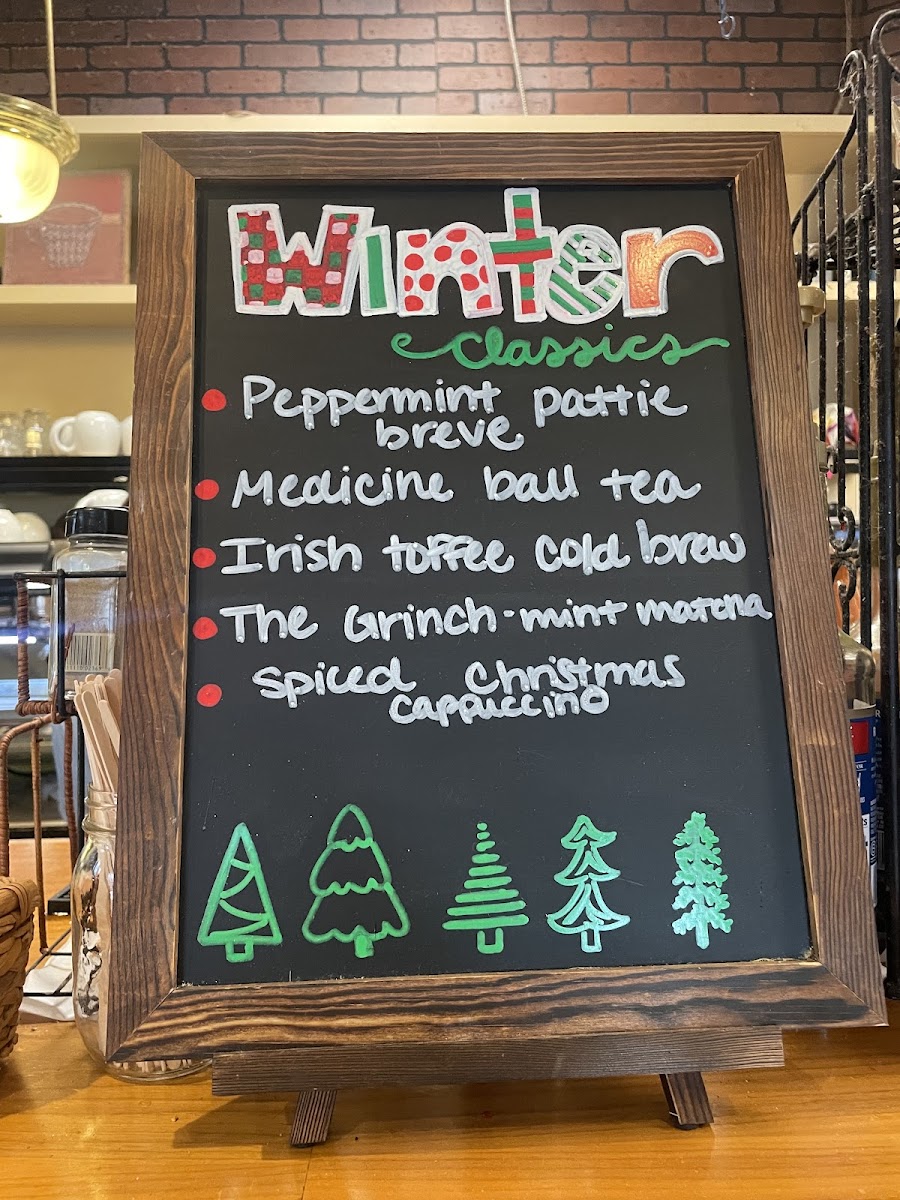 Winter
classics
• Peppermint pattie
breve
• Medicine ball tea
• Irish toffee cold brew
• The Grinch-mint matcha
• Spiced Christmas
cappuccino